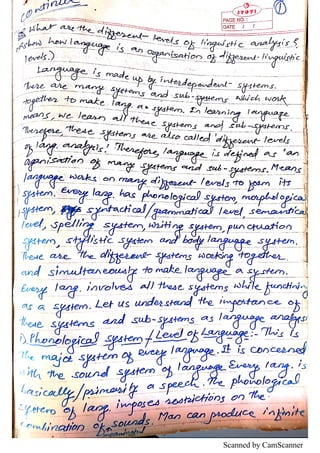 continue
PAGE NO.
DATE / /
1
Q. What are the different levels of linguistic analysis?
(show how language is an organisation of different linguistic
levels.)
Language is made up by interdependent systems.
There are many systems and sub-systems which work
together to make lang. a system. In learning language
means, we learn all these systems and sub-systems.
Therefore these systems are also called 'different levels
of lang. analysis'. Therefore, language is defined as 'an
organisation of many systems and sub-systems. Means
language works on many different levels to form its
system. Every lang. has phonological system, morphological
system, syntactical/grammatical level, semantical
level, spelling system, writing system, punctuation
system, stylistic system and body language system.
These are the different systems working together
and simultaneously to make language a system.
Every lang. involves all these systems while functioning
as a system. Let us understand the importance of
these systems and sub-systems as language analysis
1) Phonological system / Level of Language:- This is
the major system of every language. It is concerned
with the sound system of language. Every lang. is
basically/primarily a speech. The phonological
system of lang. imposes restrictions on the
combination of sounds. Man can produce infinite
Scanned by CamScanner